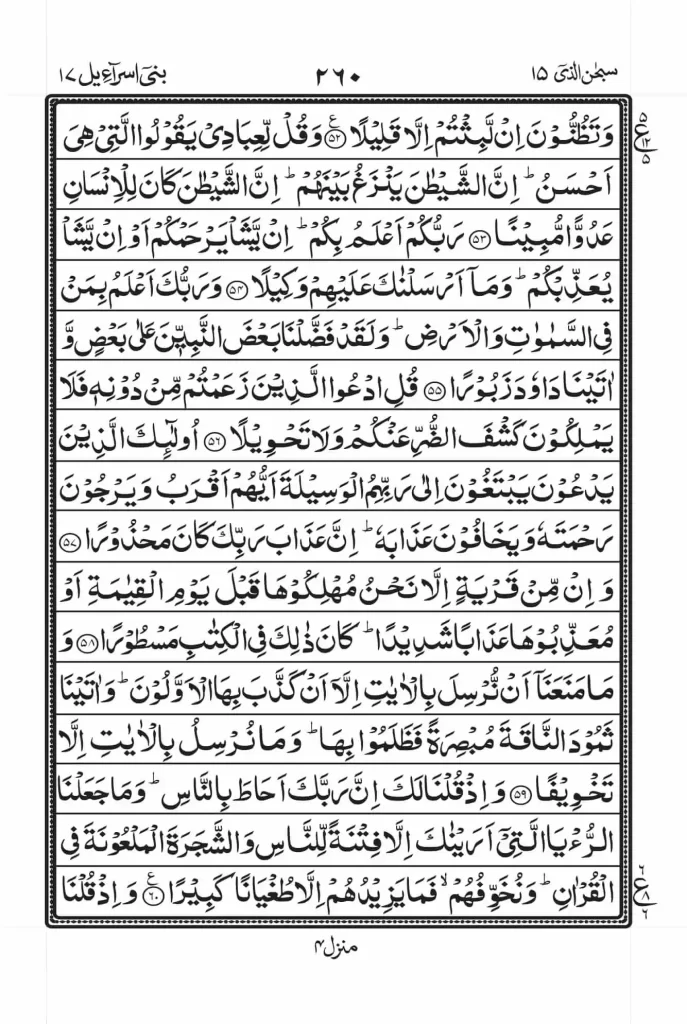 سبحٰن الذیٓ ۱۵ ۲۶۰ بنیٓ اسرآءیل ۱۷
وَتَظُنُّوۡنَ اِنۡ لَّبِثۡتُمۡ اِلَّا قَلِيۡلًا ﴿۵۲﴾ وَقُلۡ لِّعِبَادِىۡ يَقُوۡلُوا الَّتِىۡ هِىَ
اَحۡسَنُ ؕ اِنَّ الشَّيۡطٰنَ يَنۡزَغُ بَيۡنَهُمۡ ؕ اِنَّ الشَّيۡطٰنَ كَانَ لِلۡاِنۡسَانِ
عَدُوًّا مُّبِيۡنًا ﴿۵۳﴾ رَبُّكُمۡ اَعۡلَمُ بِكُمۡ ؕ اِنۡ يَّشَاۡ يَرۡحَمۡكُمۡ اَوۡ اِنۡ يَّشَاۡ
يُعَذِّبۡكُمۡ ؕ وَمَاۤ اَرۡسَلۡنٰكَ عَلَيۡهِمۡ وَكِيۡلًا ﴿۵۴﴾ وَرَبُّكَ اَعۡلَمُ بِمَنۡ
فِى السَّمٰوٰتِ وَالۡاَرۡضِ ؕ وَلَقَدۡ فَضَّلۡنَا بَعۡضَ النَّبِيّٖنَ عَلٰى بَعۡضٍ وَّ
اٰتَيۡنَا دَاوٗدَ زَبُوۡرًا ﴿۵۵﴾ قُلِ ادۡعُوا الَّذِيۡنَ زَعَمۡتُمۡ مِّنۡ دُوۡنِهٖ فَلَا
يَمۡلِكُوۡنَ كَشۡفَ الضُّرِّ عَنۡكُمۡ وَلَا تَحۡوِيۡلًا ﴿۵۶﴾ اُولٰۤٮِٕكَ الَّذِيۡنَ
يَدۡعُوۡنَ يَبۡتَغُوۡنَ اِلٰى رَبِّهِمُ الۡوَسِيۡلَةَ اَيُّهُمۡ اَقۡرَبُ وَيَرۡجُوۡنَ
رَحۡمَتَهٗ وَيَخَافُوۡنَ عَذَابَهٗ ؕ اِنَّ عَذَابَ رَبِّكَ كَانَ مَحۡذُوۡرًا ﴿۵۷﴾
وَاِنۡ مِّنۡ قَرۡيَةٍ اِلَّا نَحۡنُ مُهۡلِكُوۡهَا قَبۡلَ يَوۡمِ الۡقِيٰمَةِ اَوۡ
مُعَذِّبُوۡهَا عَذَابًا شَدِيۡدًا ؕ كَانَ ذٰلِكَ فِى الۡكِتٰبِ مَسۡطُوۡرًا ﴿۵۸﴾ وَ
مَا مَنَعَنَاۤ اَنۡ نُّرۡسِلَ بِالۡاٰيٰتِ اِلَّاۤ اَنۡ كَذَّبَ بِهَا الۡاَوَّلُوۡنَ ؕ وَاٰتَيۡنَا
ثَمُوۡدَ النَّاقَةَ مُبۡصِرَةً فَظَلَمُوۡا بِهَا ؕ وَمَا نُرۡسِلُ بِالۡاٰيٰتِ اِلَّا
تَخۡوِيۡفًا ﴿۵۹﴾ وَاِذۡ قُلۡنَا لَكَ اِنَّ رَبَّكَ اَحَاطَ بِالنَّاسِ ؕ وَمَا جَعَلۡنَا
الرُّءۡيَا الَّتِىۡۤ اَرَيۡنٰكَ اِلَّا فِتۡنَةً لِّلنَّاسِ وَالشَّجَرَةَ الۡمَلۡعُوۡنَةَ فِى
الۡقُرۡاٰنِ ؕ وَنُخَوِّفُهُمۡ ۙ فَمَا يَزِيۡدُهُمۡ اِلَّا طُغۡيَانًا كَبِيۡرًا ﴿۶۰﴾ وَاِذۡ قُلۡنَا
منزل ۴
۵ ع ۱۲ ۵
۶ ع ۸ ۶